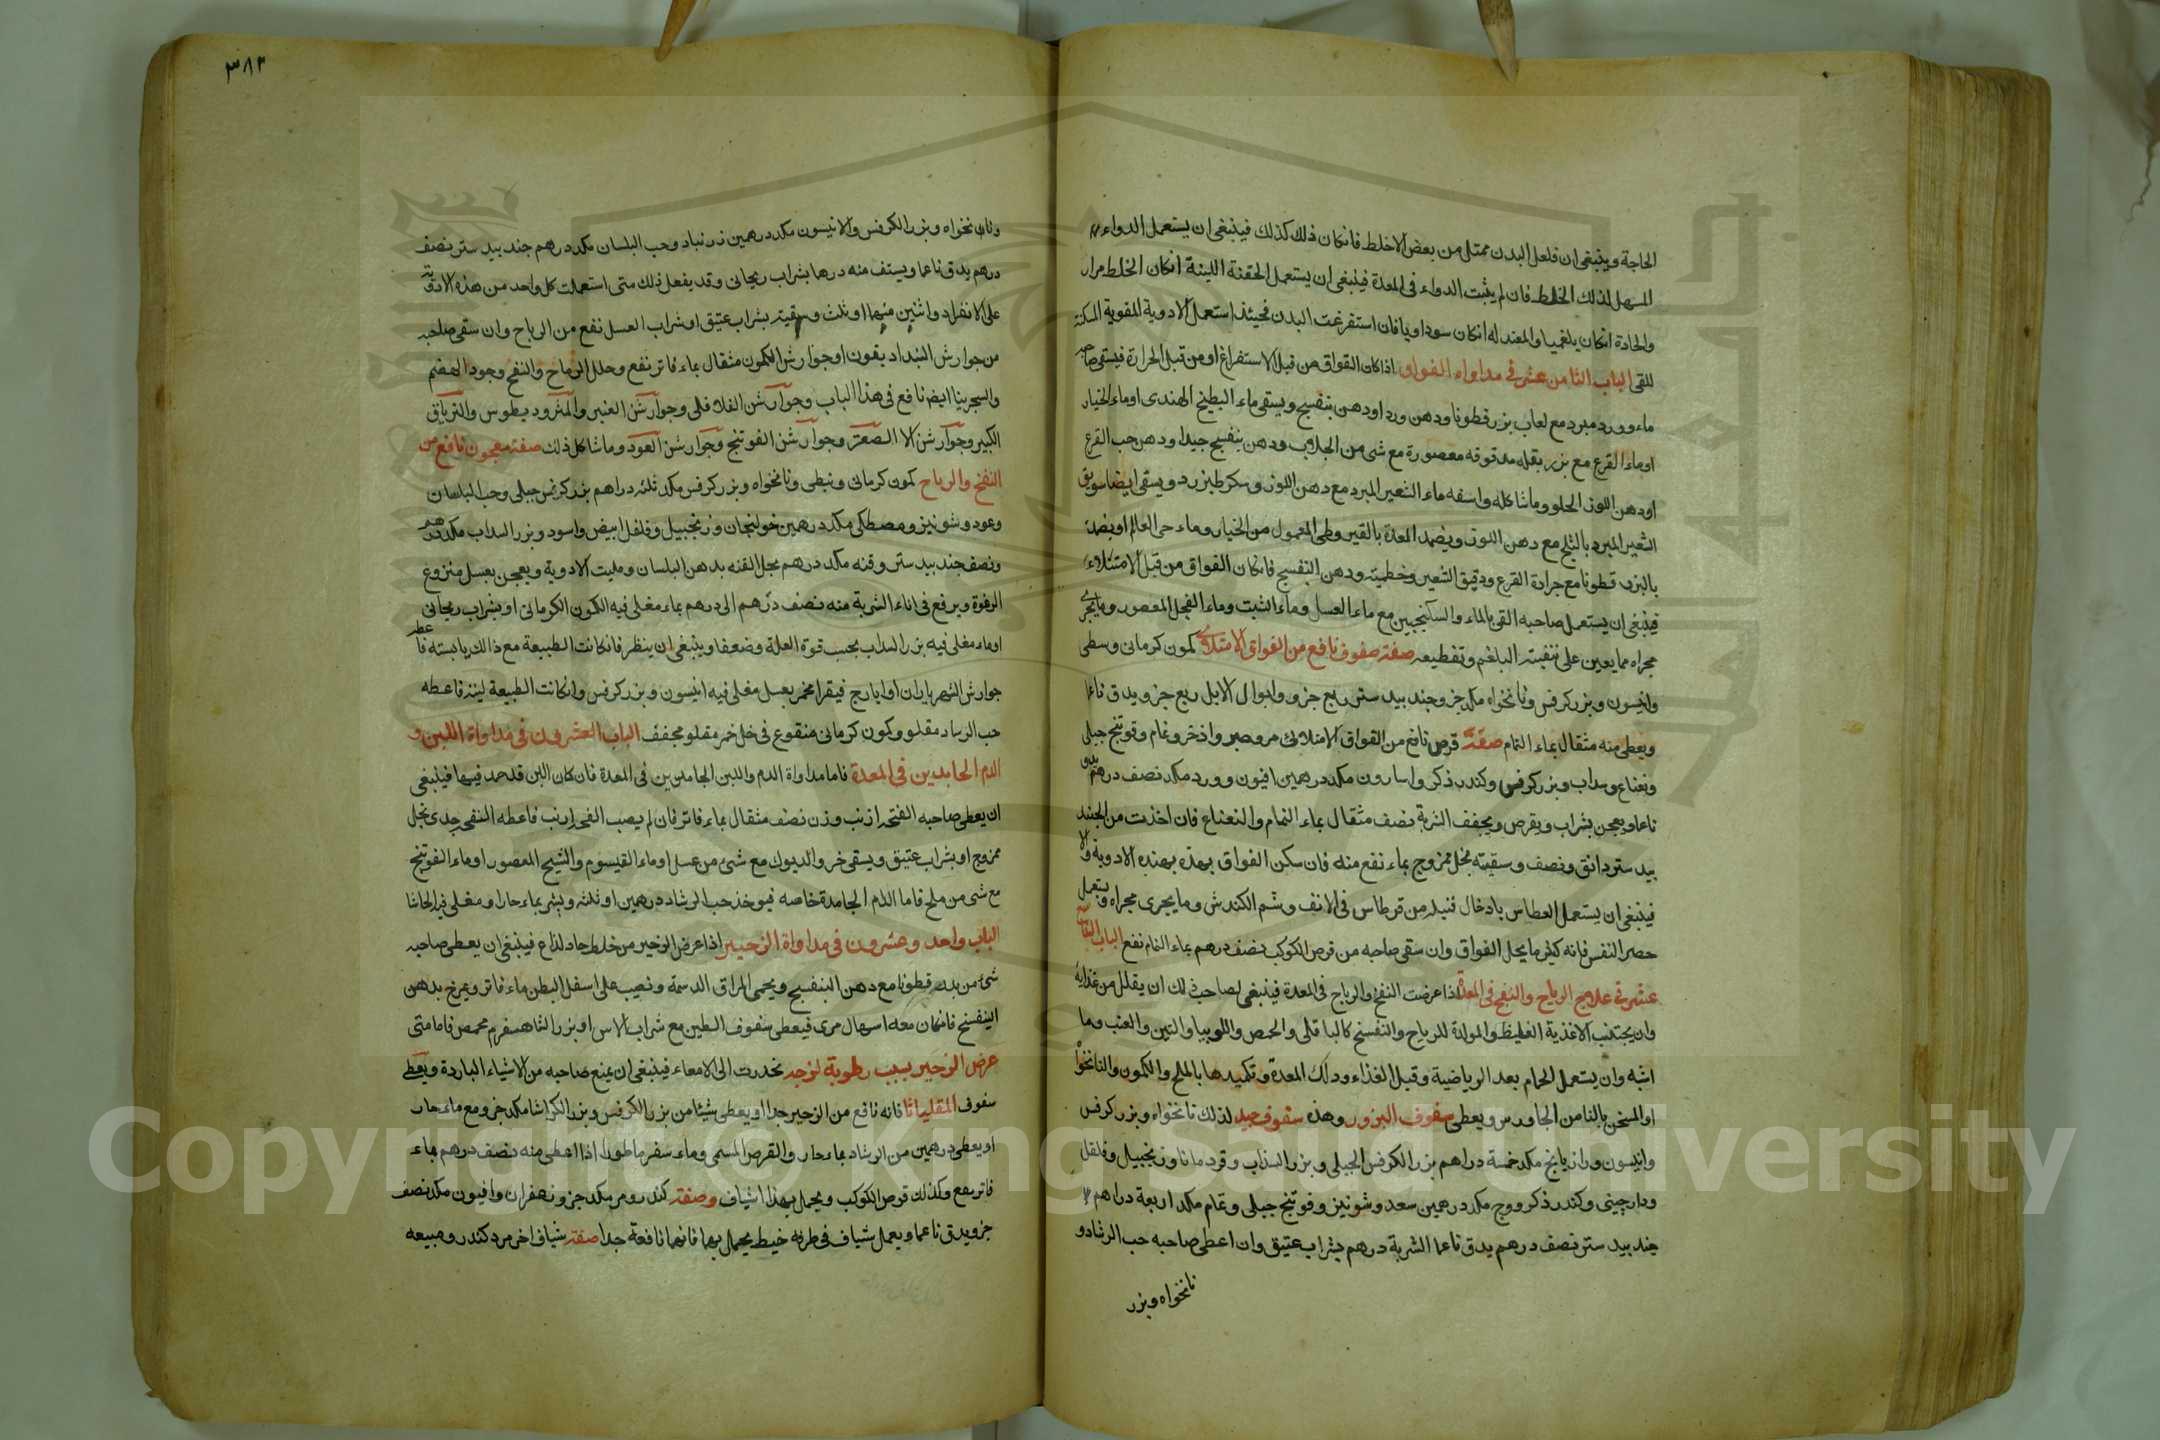 الحاجة وينبغى ان فلعل البدن ممتلى من بعض الاخلط فانكان ذلك كذلك فينبغى ان يستعمل الدواء
المسهل لذلك الخلط فان لم يثبت الدواء فى المعدة فينبغى ان يستعمل الحقنة اللينة انكان الخلط مرار
والحادة انكان بلغميا والمعتدله انكان سوداويا فان استفرغت البدن فحينئذ استعمل الادوية المقوية المسكنة
للقى الباب الثامن عشر فى مداواه الفواق اذا كان الفواق من قبل الاستفراغ او من قبل الحرارة فيسقى صاحبه
ماء وورد مبرد مع لعاب بزر قطونا ودهن ورد او دهن بنفسج ويسقى ماء البطيخ الهندى او ماء الخيار
او ماء القرع مع بزر بقله مدقوقه معصورة مع شى من الجلاب ودهن بنفسج جيدا ودهن حب القرع
او دهن اللوز الحلو وما شاكله واسقه ماء الشعير المبرد مع دهن اللوز وسكر طبرزد ويسقى ايضا سويق
الشعير المبرد بالثلج مع دهن اللوز ويضمد المعدة بالقيروطى المعمول من الخيار وماء حى العالم او يضمد
بالبزر قطونا مع جرادة القرع ودقيق الشعير وخطمية ودهن البنفسج فانكان الفواق من قبل الامتلاء
فينبغى ان يستعمل صاحبه القى بالماء والسكنجبين مع ماء العسل وماء الشبت وماء الفجل المعصور وما يجرى
مجراه مما يعين على تنقيته البلغم وتقطيعه صفة سفوف نافع من الفواق الامتلاى كمون كرمانى وسطى
وانيسون وبزر كرفس ونانخواه مكد جزو جند بيد ستر ربع جزو وابوال الابل ربع جزو يدق ناعما
ويعطى منه مثقال بماء النمام صفة قرص نافع من الفواق الامتلائى مر وصبر واذخر ونمام وفوتنج جبلى
ونعناع وسداب وبزر كرفس وكندر ذكر واسارون مكد درهمين افيون وورد مكد نصف درهم يدق
ناعما ويعجن بشراب ويقرص ويجفف الشربة نصف مثقال بماء النمام والنعناع فان اخذت من الجند
بيد ستر دانق ونصف وسقيته بخل ممزوج بماء نفع منه فان سكن الفواق بهذه بهذه الادوية والا
فينبغى ان يستعمل العطاس بادخال فتيله من قرطاس فى الانف وشم الكندش وما يجرى مجراه ويتعمل
حصر النفس فانه كثير ما يحل الفواق وان سقى صاحبه من قرص الكوكب نصف درهم بماء النمام نفع الباب التاسع
عشر فى علاج الرياح والنفخ فى المعدة اذا عرضت النفخ والرياح فى المعدة فينبغى لصاحب ذلك ان يقلل من غذايه
وان يجتنب الاغذية الغليظ والمولدة للرياح والنفسخ كالباقلى والحمص واللوبيا والتين والعنب وما
اشبه وان يستعمل الحمام بعد الرياضية وقبل الغذاء ودلك المعدة وتكميدها بالملح والكمون والنانخواه
او المسخن بالنا من الجاورس ويعطى سفوف البزور وهذه سفوف جيد لذلك نانخواه وبزر كرفس
وانيسون ورازيانج مكد خمسة دراهم بزر الكرفس الجبلى وبزر السذاب وقردمانا وزنجبيل وفلفل
ودارچينى وكندر ذكر ووج مكد درهمين سعد وشونيز وفوتنج جبلى ونمام مكد اربعة دراهم
جند بيد ستر نصف درهم يدق ناعما الشربة درهم بشراب عتيق وان اعطى صاحبه حب الرشاد و
نانخواه وبزر
٣٨٣
ونانخواه وبزر الكرفس والانيسون مكد درهمين زرنباد وحب البلسان مكد درهم جند بيد ستر نصف
درهم يدق ناعما ويستف منه درهما بشراب ريحانى وقد يفعل ذلك متى استعملت كل واحد من هذه الادوية
على الانفراد واثنين منهما او ثلث وسقيته بشراب عتيق او شراب العسل نفع من الرياح وان سقى صاحبه
من جوارش البنداد يقون او جوارش الكمون مثقال بماء فاتر نفع وحلل الرماح والنفخ وجود الهضم
والسجرينا ايضا نافع فى هذا الباب وجوارشن الفلافلى وجوارشن العنبر والمثروديطوس والترياق
الكبير وجوارشن الا الصعتر وجوارشن الفوتنج وجوارشن العود وما شاكل ذلك صفة معجون نافع من
النفخ والرياح كمون كرمانى ونبطى ونانخواه وبزر كرفس مكد ثلثه دراهم بزر كرفس جبلى وحب البلسان
وعود وشونيز ومصطكى مكد درهمين خولنجان وزنجبيل وفلفل ابيض واسود وبزر السداب مكد درهم
ونصف جند بيد ستر وقنه مكد درهم يحل القنه بدهن البلسان ومليت الادوية ويعجن بعسل منزوع
الرغوة ويرفع فى اناء الشربة منه نصف درهم الى درهم بماء مغلى فيه الكمون الكرمانى او بشراب ريحانى
او ماء مغلى فيه بزر السداب بحسب قوة العلة وضعفها وينبغى ان ينظر فانكانت الطبيعة مع ذالك يابسته فاعطه
جوارش الشهرياران او ايارج فيقرا مخمر بعسل مغلى فيه انيسون وبزر كرفس وانكانت الطبيعة لينة فاعطه
حب الرشاد مقلو وكمون كرمانى منقوع فى خل خمر مقلو مجفف الباب العشرون فى مداواة اللبن و
الدم الجامدين فى المعدة فاما مداواة الدم واللبن الجامدين فى المعدة فان كان اللبن قد جمد فيها فينبغى
ان يعطى صاحبه الفنحه ارنب وزن نصف مثقال بماء فاتر فان لم يصب الفحه ارنب فاعطه النفحه جدى بخل
ممزوج او بشراب عتيق ويسقى خرو الديوك مع شىء من عسل او ماء القيسوم والشيح المعصور او ماء الفوتنج
مع شى من ملح فاما الدم الجامدة خاصه فيوخذ حب الرشاد درهمين او ثلثه ويشر بماء حار او مغلى فيه الحاشا
الباب واحد وعشرون فى مداواة الزحير اذا عرض الزحير من خلط حاد لذاع فينبغى ان يعطى صاحبه
شىء من بزر قطونا مع دهن البنفسج ويحمى المراق الدسمة ونصيب على اسفل البطن ماء فاتر ويمرخ بدهن
البنفسج فانكان معه اسهال مرى فيعطى سفوف الطين مع شراب الاس او بزر الشاهسفرم محمص فاما متى
عرض الزحير بسبب رطوبة لزجه نحدرت الى الامعاء فينبغى ان يمنع صاحبه من الاشياء الباردة ويعطى
سفوف المقلياثا فانه نافع من الزحير جدا او يعطى شيئا من بزر الكرفس وبزر الكراث مكد جزو مع ماء حار
او يعطى درهمين من الرشاد بماء حار والقرص المسمى وماء سفرماطونا اذا اعطى منه نصف درهم بماء
فاتر نفع وكذلك قرص الكوكب ويحمل بهذا اشياف وصفته كندر ومر مكد جزو زعفران وافيون مكد نصف
جزو يدق ناعما ويعمل شياف فى طرفه خيط يحمل بها فانها نافعة جدا صفة شياف اخر مر دكندر وميعه